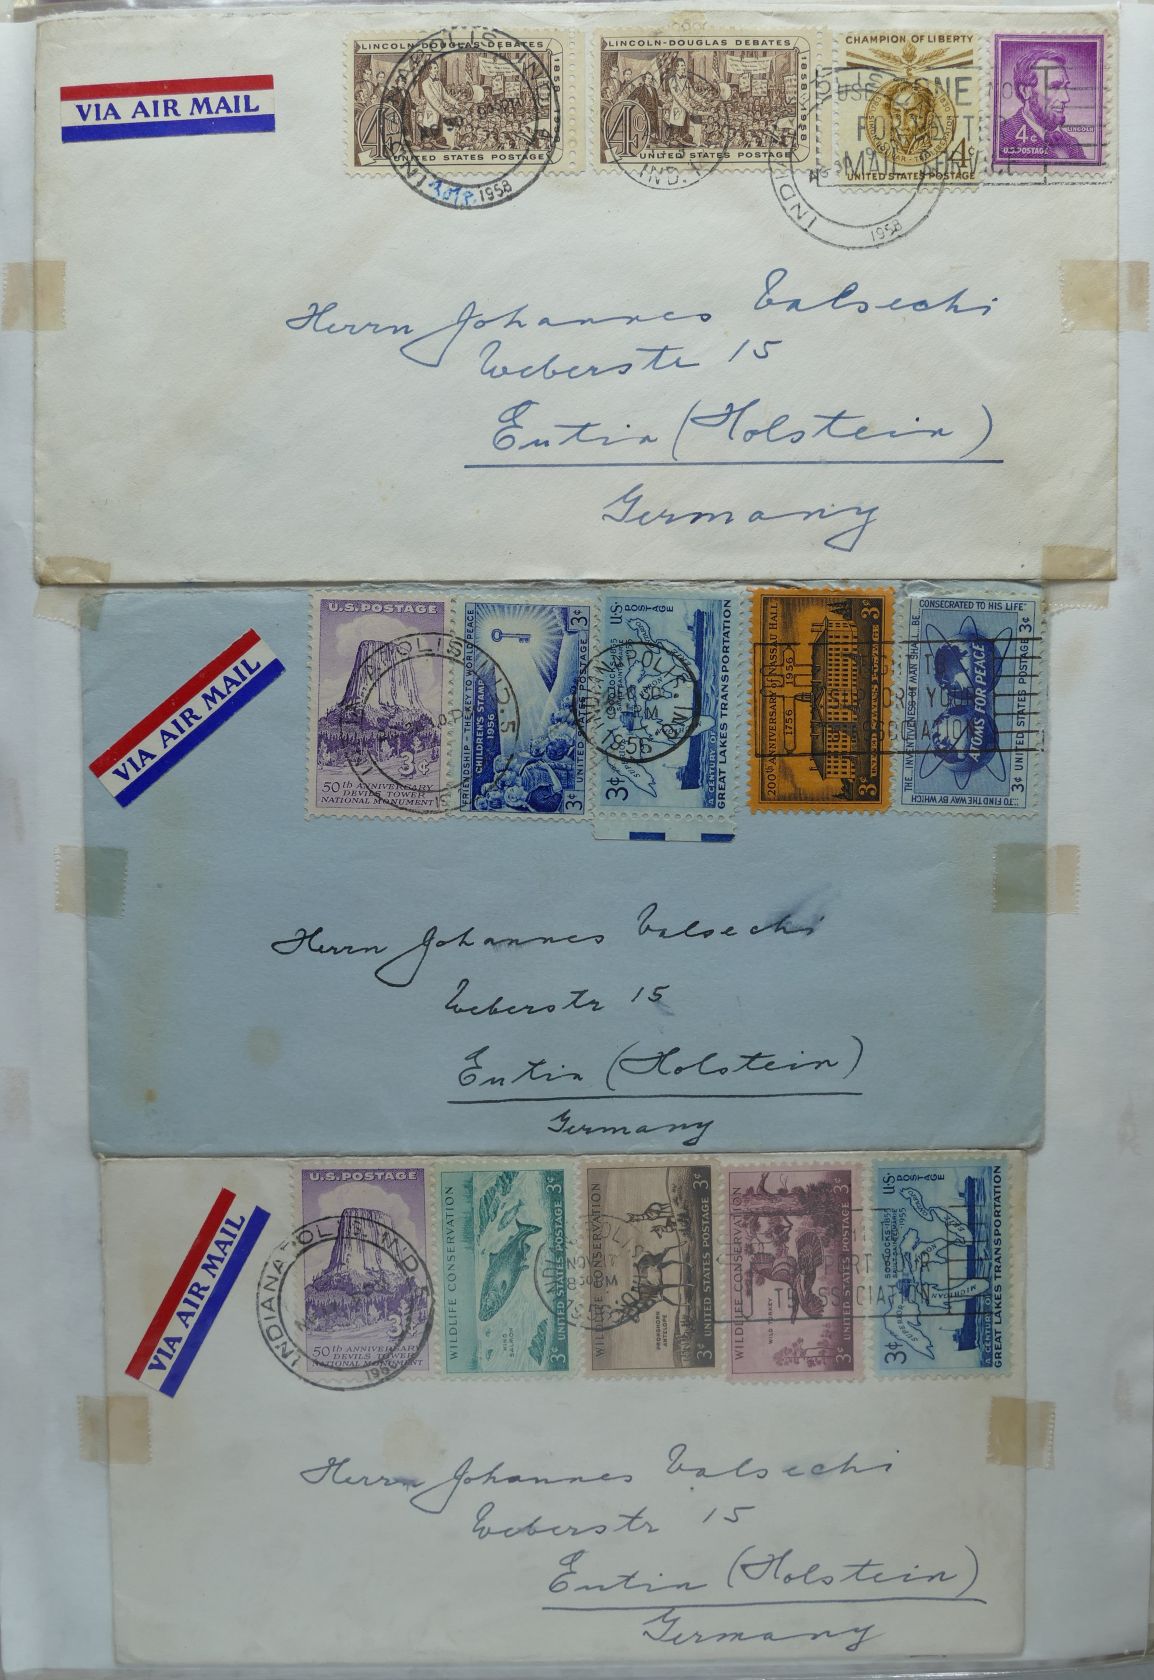 VIA AIR MAIL
LINCOLN-DOUGLAS DEBATES
1858-1958
4¢
UNITED STATES POSTAGE
LINCOLN-DOUGLAS DEBATES
1858-1958
4¢
UNITED STATES POSTAGE
CHAMPION OF LIBERTY
4¢
UNITED STATES POSTAGE
4¢ LINCOLN
U.S. POSTAGE
1958
IND.
USE ZONE NOS.
FOR BETTER
MAIL SERVICE
1958
Herrn Johannes Valsechi
Weberstr 15
Eutin (Holstein)
Germany
VIA AIR MAIL
U.S. POSTAGE
3¢
50th ANNIVERSARY
DEVILS TOWER
NATIONAL MONUMENT
FRIENDSHIP - THE KEY TO WORLD PEACE
CHILDREN'S STAMP
1956
3¢ UNITED STATES POSTAGE 3¢
U.S. POSTAGE
SOO LOCKS · 1855
SAULT SAINTE MARIE
1955
SUPERIOR
HURON
3¢
A CENTURY OF
GREAT LAKES TRANSPORTATION
200th ANNIVERSARY OF NASSAU HALL
1756 1956
3¢ UNITED STATES POSTAGE 3¢
THE INVENTIVENESS OF MAN SHALL BE
CONSECRATED TO HIS LIFE"
ATOMS FOR PEACE
...TO FIND THE WAY BY WHICH
3¢ UNITED STATES POSTAGE 3¢
PM
1956
SUPPORT YOUR
ASSOCIATION
Herrn Johannes Valsechi
Weberstr 15
Eutin (Holstein)
Germany
VIA AIR MAIL
U.S. POSTAGE
3¢
50th ANNIVERSARY
DEVILS TOWER
NATIONAL MONUMENT
INDIANAPOLIS, IND.
WILDLIFE CONSERVATION
KING
SALMON
3¢ UNITED STATES POSTAGE 3¢
WILDLIFE CONSERVATION
PRONGHORN
ANTELOPE
3¢ UNITED STATES POSTAGE 3¢
WILDLIFE CONSERVATION
WILD TURKEY
3¢ UNITED STATES POSTAGE 3¢
U.S. POSTAGE
SOO LOCKS · 1855
SAULT SAINTE MARIE
1955
SUPERIOR
MICHIGAN
HURON
3¢
A CENTURY OF
GREAT LAKES TRANSPORTATION
Herrn Johannes Valsechi
Weberstr 15
Eutin (Holstein)
Germany